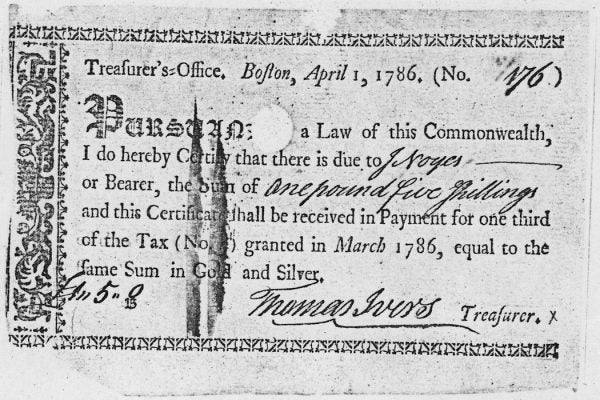 Treaſurer's-Office. Boſton, April 1, 1786. (No. 176)
PURSUAN: a Law of this Commonwealth,
I do hereby Certify that there is due to J Noyes
or Bearer, the Sum of One pound five Shillings
and this Certificate ſhall be received in Payment for one third
of the Tax (No. ) granted in March 1786, equal to the
ſame Sum in Gold and Silver.
5 " 0
Thomas Ivers Treaſurer.